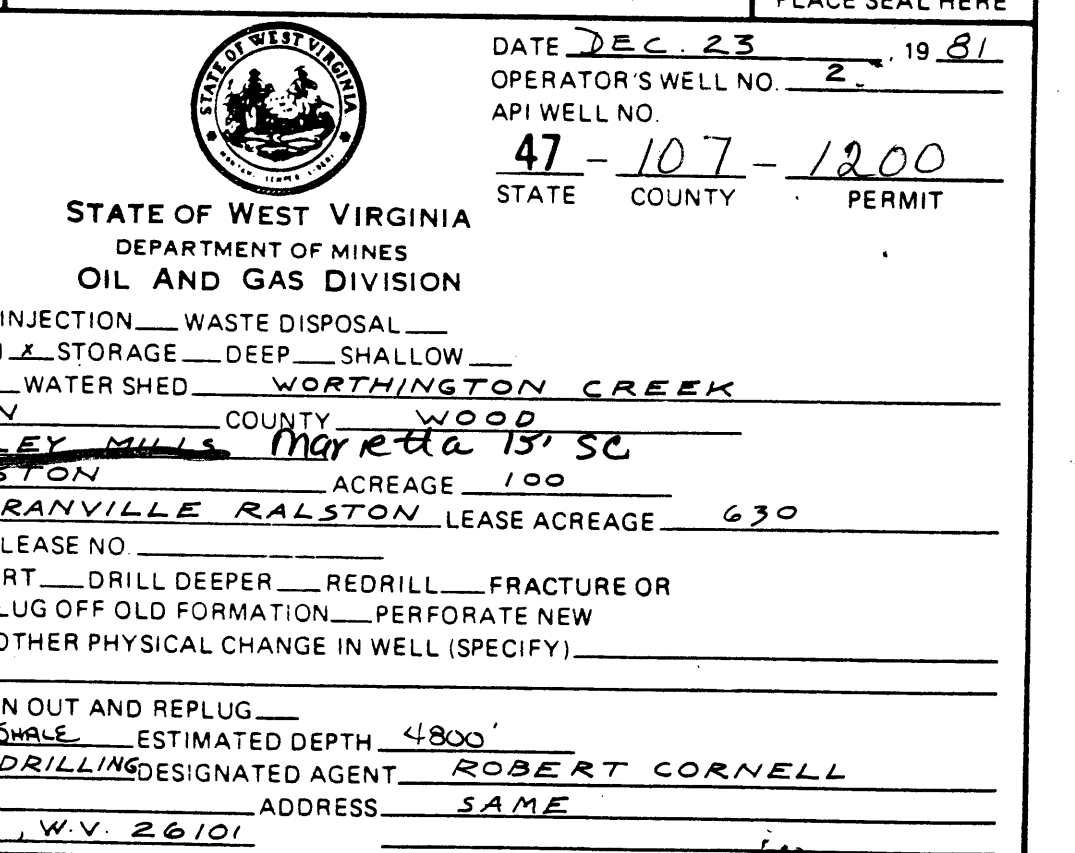 PLACE SEAL HERE
STATE OF WEST VIRGINIA
DATE DEC. 23, 19 81
OPERATOR'S WELL NO. 2
API WELL NO.
47 - 107 - 1200
STATE COUNTY PERMIT
STATE OF WEST VIRGINIA
DEPARTMENT OF MINES
OIL AND GAS DIVISION
INJECTION___ WASTE DISPOSAL___
x STORAGE___ DEEP___ SHALLOW___
WATER SHED WORTHINGTON CREEK
N COUNTY WOOD
LEY MILLS Marietta 15' SC
STON ACREAGE 100
RANVILLE RALSTON LEASE ACREAGE 630
LEASE NO.
RT___DRILL DEEPER___REDRILL___FRACTURE OR
LUG OFF OLD FORMATION___PERFORATE NEW
OTHER PHYSICAL CHANGE IN WELL (SPECIFY)
N OUT AND REPLUG___
SHALE ESTIMATED DEPTH 4800'
DRILLING DESIGNATED AGENT ROBERT CORNELL
ADDRESS SAME
, W.V. 26101